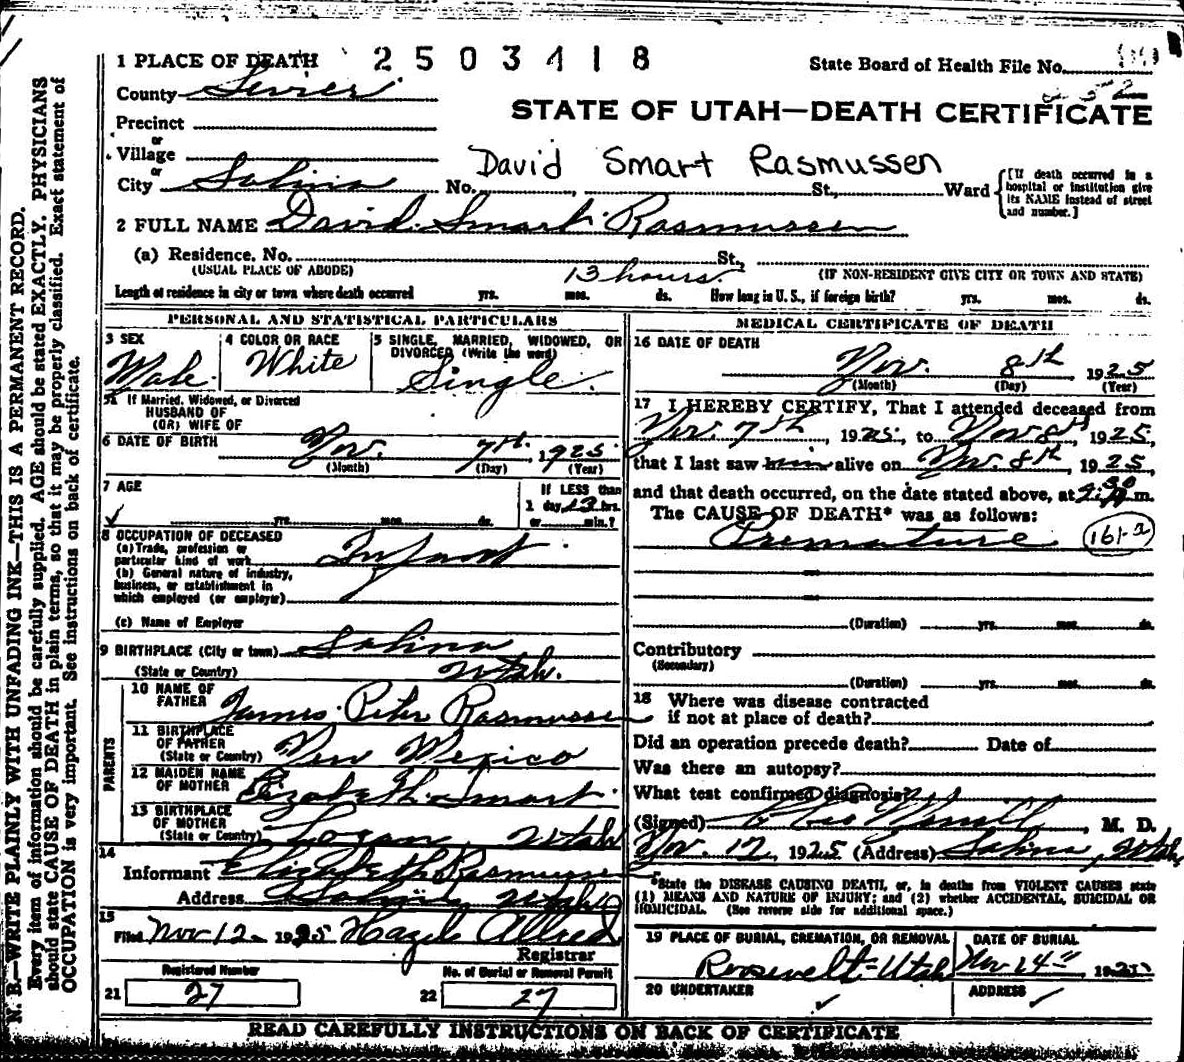 1 PLACE OF DEATH 2503418 State Board of Health File No.
County Sevier 252
STATE OF UTAH—DEATH CERTIFICATE
Precinct
or
Village
or
David Smart Rasmussen
City Salina No. St., Ward
[If death occurred in a hospital or institution give its NAME instead of street and number.]
2 FULL NAME David Smart Rasmussen
(a) Residence. No. St.,
(USUAL PLACE OF ABODE) 13 hours. (IF NON-RESIDENT GIVE CITY OR TOWN AND STATE)
Length of residence in city or town where death occurred yrs. mos. ds. How long in U. S., if foreign birth? yrs. mos. ds.
PERSONAL AND STATISTICAL PARTICULARS
3 SEX 4 COLOR OR RACE 5 SINGLE, MARRIED, WIDOWED, OR
DIVORCED (Write the word)
Male White Single.
5a If Married, Widowed, or Divorced
HUSBAND OF
(OR) WIFE OF
6 DATE OF BIRTH Nov. 7th, 1925
(Month) (Day) (Year)
7 AGE If LESS than
yrs. mos. ds. 1 day, 13 hrs.
or min.?
8 OCCUPATION OF DECEASED
(a) Trade, profession or
particular kind of work Infant
(b) General nature of industry,
business, or establishment in
which employed (or employer)
(c) Name of Employer
9 BIRTHPLACE (City or town) Salina
(State or Country) Utah.
PARENTS
10 NAME OF
FATHER James Peter Rasmussen
11 BIRTHPLACE
OF FATHER
(State or Country) New Mexico
12 MAIDEN NAME
OF MOTHER Elizabeth Smart.
13 BIRTHPLACE
OF MOTHER
(State or Country) Logan, Utah
14
Informant Elizabeth Rasmussen
Address Salina, Utah
15
Filed Nov 12 1925 Hazel Allred
Registrar
Registered Number No. of Burial or Removal Permit
21 27 22 27
MEDICAL CERTIFICATE OF DEATH
16 DATE OF DEATH
Nov. 8th 1925
(Month) (Day) (Year)
17 I HEREBY CERTIFY, That I attended deceased from
Nov. 7th, 1925, to Nov 8th 1925,
that I last saw him alive on Nov. 8th, 1925,
and that death occurred, on the date stated above, at m.
The CAUSE OF DEATH* was as follows:
Premature 161-a
(Duration) yrs. mos. ds.
Contributory
(Secondary)
(Duration) yrs. mos. ds.
18 Where was disease contracted
if not at place of death?
Did an operation precede death? Date of
Was there an autopsy?
What test confirmed diagnosis?
(Signed) , M. D.
Nov. 12, 1925 (Address) Salina, Utah
*State the DISEASE CAUSING DEATH, or, in deaths from VIOLENT CAUSES state
(1) MEANS AND NATURE OF INJURY; and (2) whether ACCIDENTAL, SUICIDAL OR
HOMICIDAL. (See reverse side for additional space.)
19 PLACE OF BURIAL, CREMATION, OR REMOVAL DATE OF BURIAL
Roosevelt-Utah Nov 14th
20 UNDERTAKER ADDRESS
READ CAREFULLY INSTRUCTIONS ON BACK OF CERTIFICATE
N. B.—WRITE PLAINLY WITH UNFADING INK—THIS IS A PERMANENT RECORD.
Every item of information should be carefully supplied. AGE should be stated EXACTLY. PHYSICIANS
should state CAUSE OF DEATH in plain terms, so that it may be properly classified. Exact statement of
OCCUPATION is very important. See instructions on back of certificate.